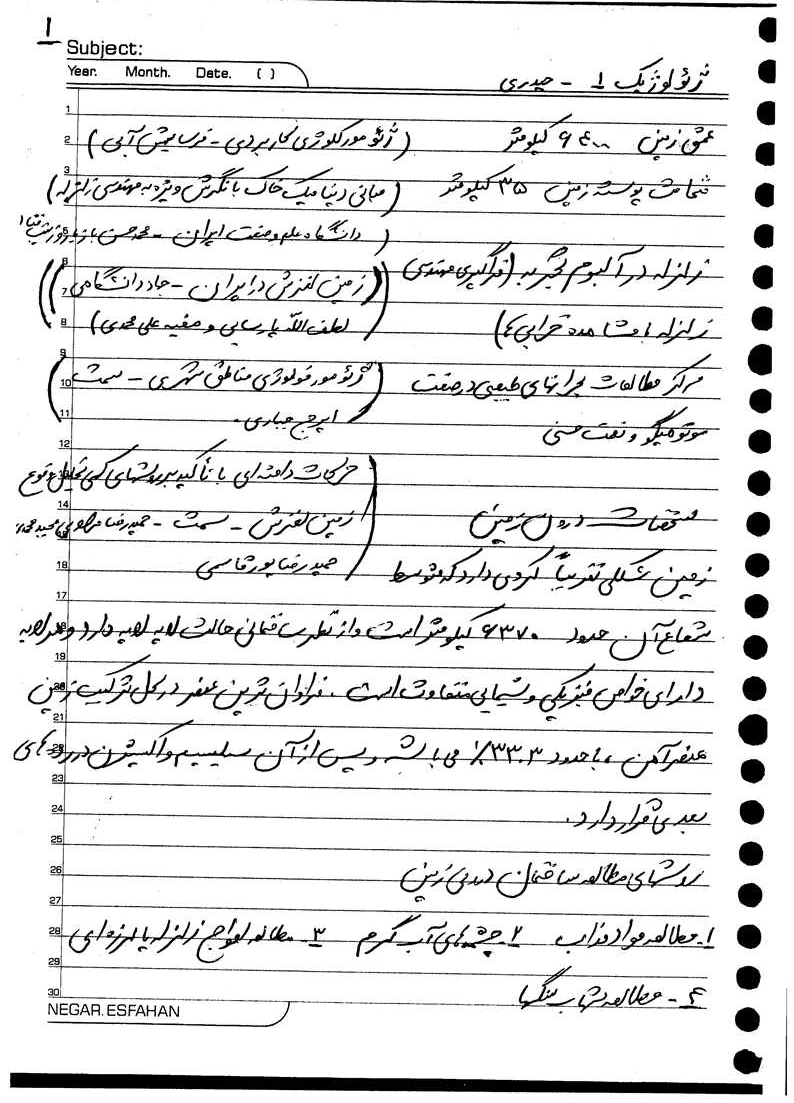 1
Subject:
Year. Month. Date. ( )
ژئولوژیک 1 - حیدری
عمق زمین ۶۴۰۰ کیلومتر (ژئومورکلوژی کاربردی - فرسایش آبی)
ضخامت پوسته زمین ۳۵ کیلومتر (مبانی دینامیک خاک با نگرش ویژه به مهندسی زلزله)
(دانشگاه علم و صنعت ایران - محمدحسن بازیار
زلزله در آلبوم تجربه (فراگیری مهندسی ((زمین لغزش در ایران - جاددانشگاهی
زلزله با مشاهده خرابی ها) لطف الله پارسایی و صفیه علی محمدی)
مرکز مطالعات بحرانهای طبیعی در صنعت (ژئومورفولوژی مناطق شهری - سمت
ایرج جباری.)
حرکات دامنه ای با تأکید بر روشهای کمی تحلیل وقوع
مشخصات درون زمین زمین لغزش - سمت - حمیدرضا
زمین شکلی تقریباً کروی دارد که متوسط حمیدرضا پورقاسمی
شعاع آن حدود ۶۳۷۰ کیلومتر است و از نظر ساختمانی حالت لایه لایه دارد و هر لایه
دارای خواص فیزیکی و شیمیایی متفاوت است. فراوان ترین عنصر در کل ترکیب زمین
عنصر آهن، با حدود ۳۳.۳٪ می باشد و پس از آن سیلیسیم و اکسیژن در رده های
بعدی قرار دارد.
روشهای مطالعه ساختمان درونی زمین
۱- مطالعه مواد مذاب ۲- چشمه های آب گرم ۳- مطالعه امواج زلزله یا لرزه ای
۴- مطالعه شهاب سنگها
1
2
3
5
6
7
8
9
10
11
12
13
14
18
17
18
19
20
21
22
23
24
25
26
27
28
29
30
NEGAR.ESFAHAN